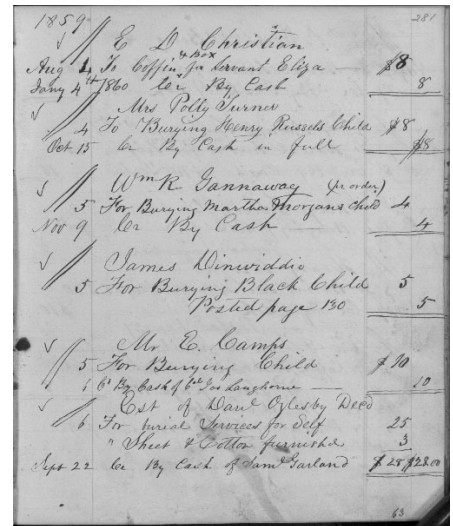 1859 281
E D Christian
Aug 4 To Coffin & Box for Servant Eliza — $8
Jany 4th 1860 Cr By Cash 8
Mrs Polly Turner
4 To Burying Henry Russels Child $8
Oct 15 Cr By Cash in full $8
Wm R Gannaway (pr order)
5 For Burying Martha Morgans Child 4
Nov 9 Cr By Cash — 4
James Dinwiddie
5 For Burying Black Child 5
Posted page 130 5
Mr E. Camps
5 For Burying Child $10
6 By Cash of Jas Langhorne — 10
Est of Danl Oglesby Decd
6 For burial Services for Self 25
" Sheet & Cotton furnished 3
Sept 22 Cr By Cash of Saml Garland $28 $28.00
63